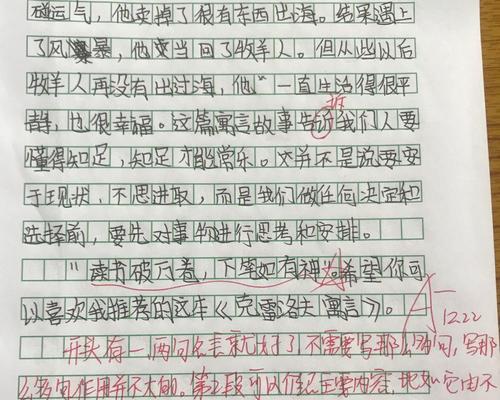 碰运气，他卖掉了很有东西出海。结果遇上
了风暴，他又当回了牧羊人。但从些以后
牧羊人再没有出过海，他“一直生活得很平
静，也很幸福。这篇寓言故事告诉我们人要
懂得知足，知足才能常乐。这并不是说要安
于现状，不思进取，而是我们做任何决定和
选择前，要先对事物进行思考和安排。
“读书破万卷，下笔如有神”希望你可
以喜欢我推荐的这本《克雷洛夫寓言》。
12.22
开头有一两句名言就好了，不需要写那么多句，写那
么多句作用并不大的。第2段可以介绍主要内容，比如它由不